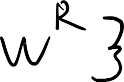 w^R }